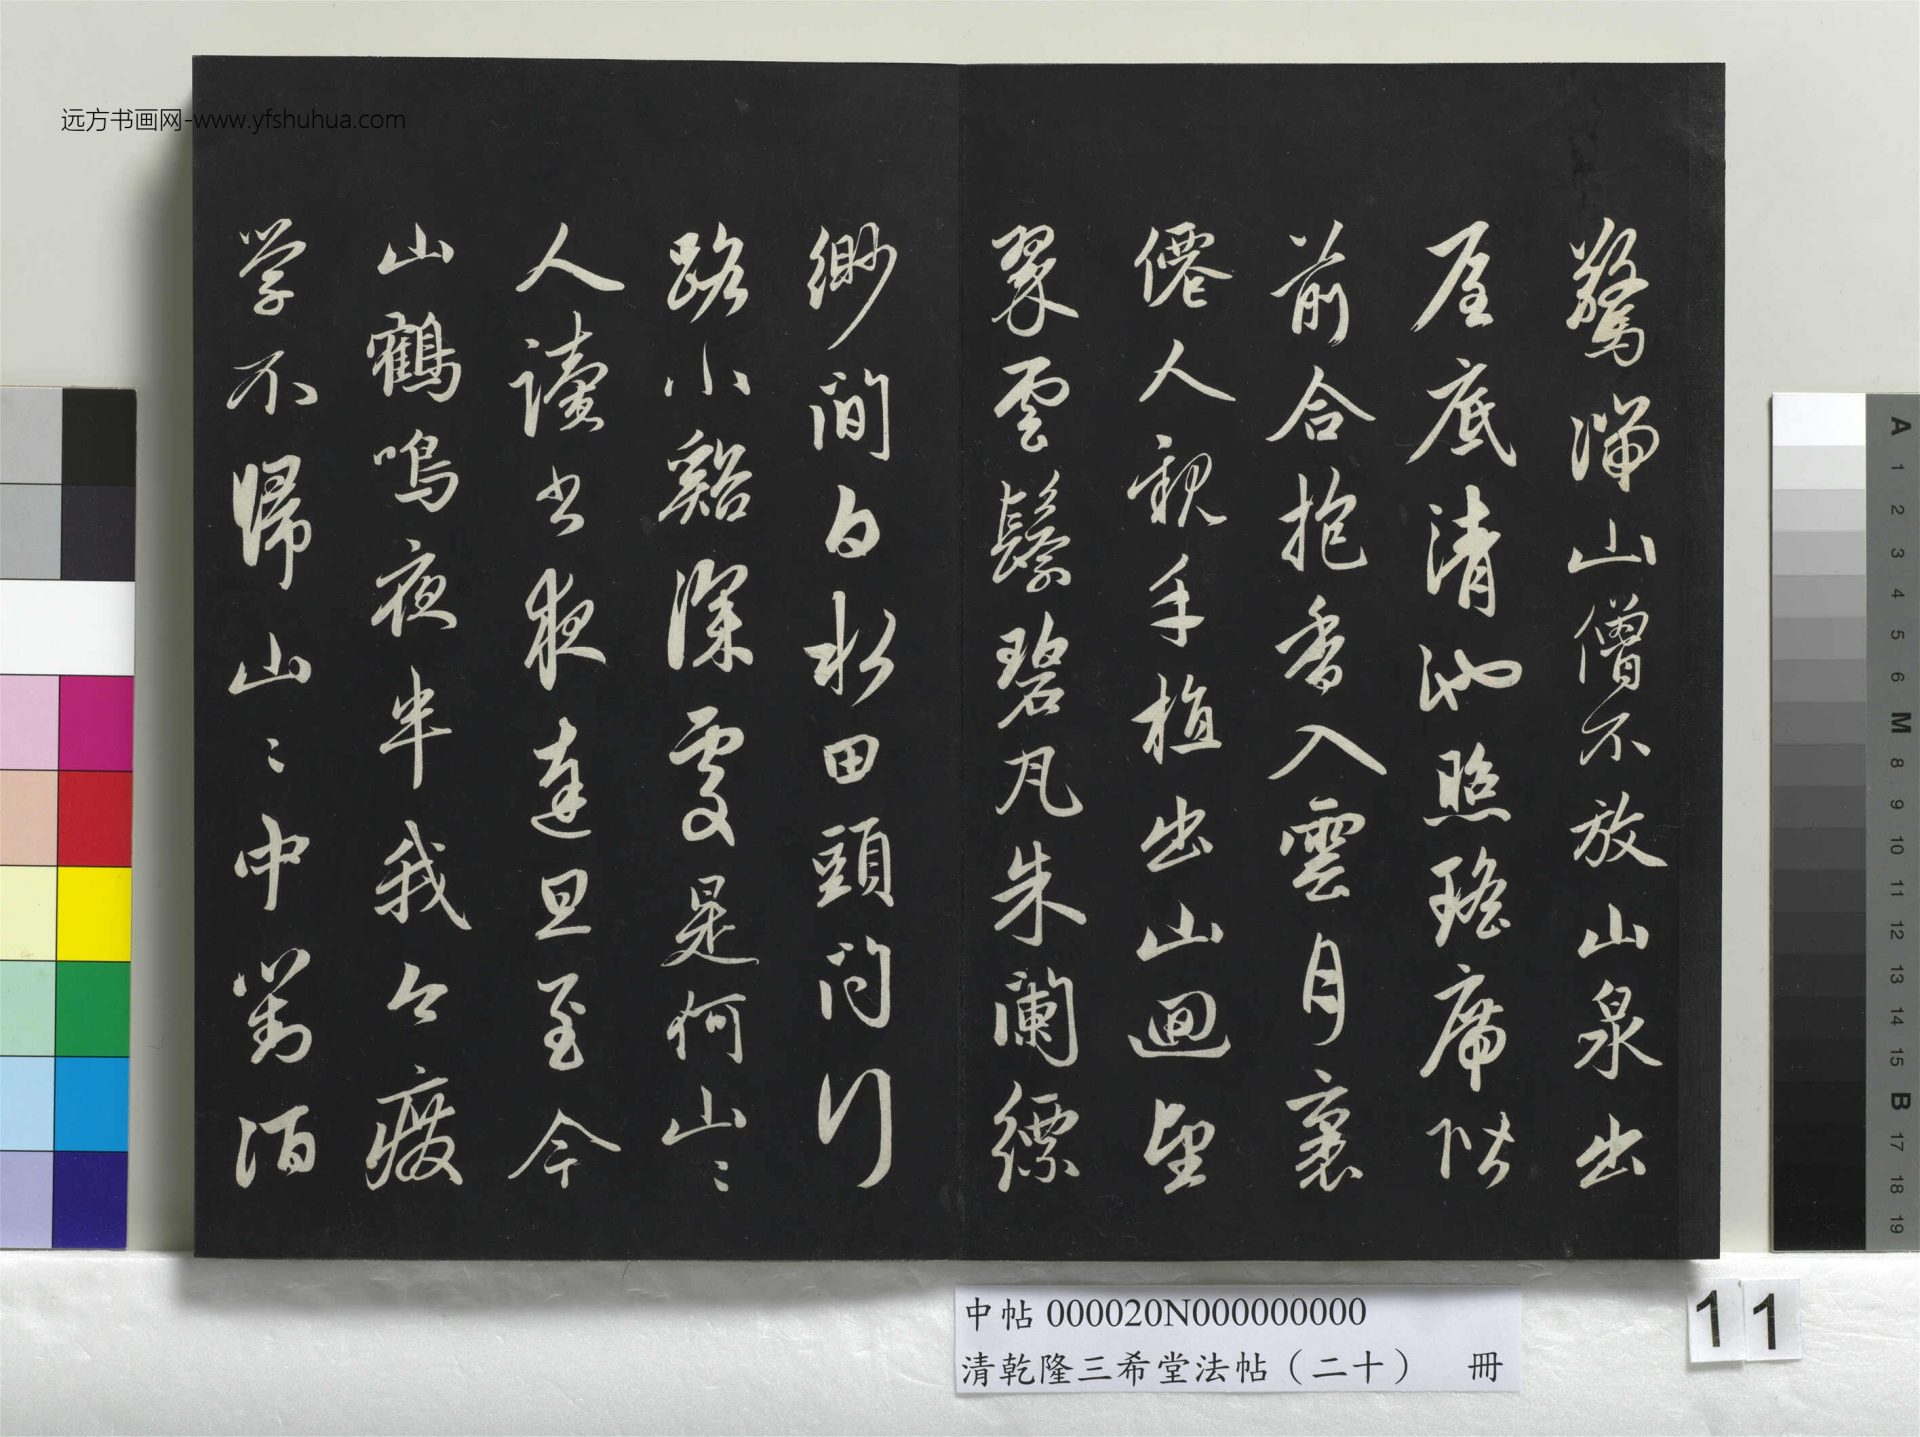 驚湍山僧不放山泉出
屋底清池照瑤席階
前合抱香入雲月裏
僊人親手植出山迴望
翠雲鬟碧瓦朱闌縹
緲間白水田頭問行
路小谿深處是何山〻
人讀書夜達旦至今
山鶴鳴夜半我今廢
学不歸山〻中對酒
远方书画网-www.yfshuhua.com
中帖 000020N000000000
清乾隆三希堂法帖（二十） 冊
11
A
1
2
3
4
5
6
M
8
9
10
11
12
13
14
15
B
17
18
19